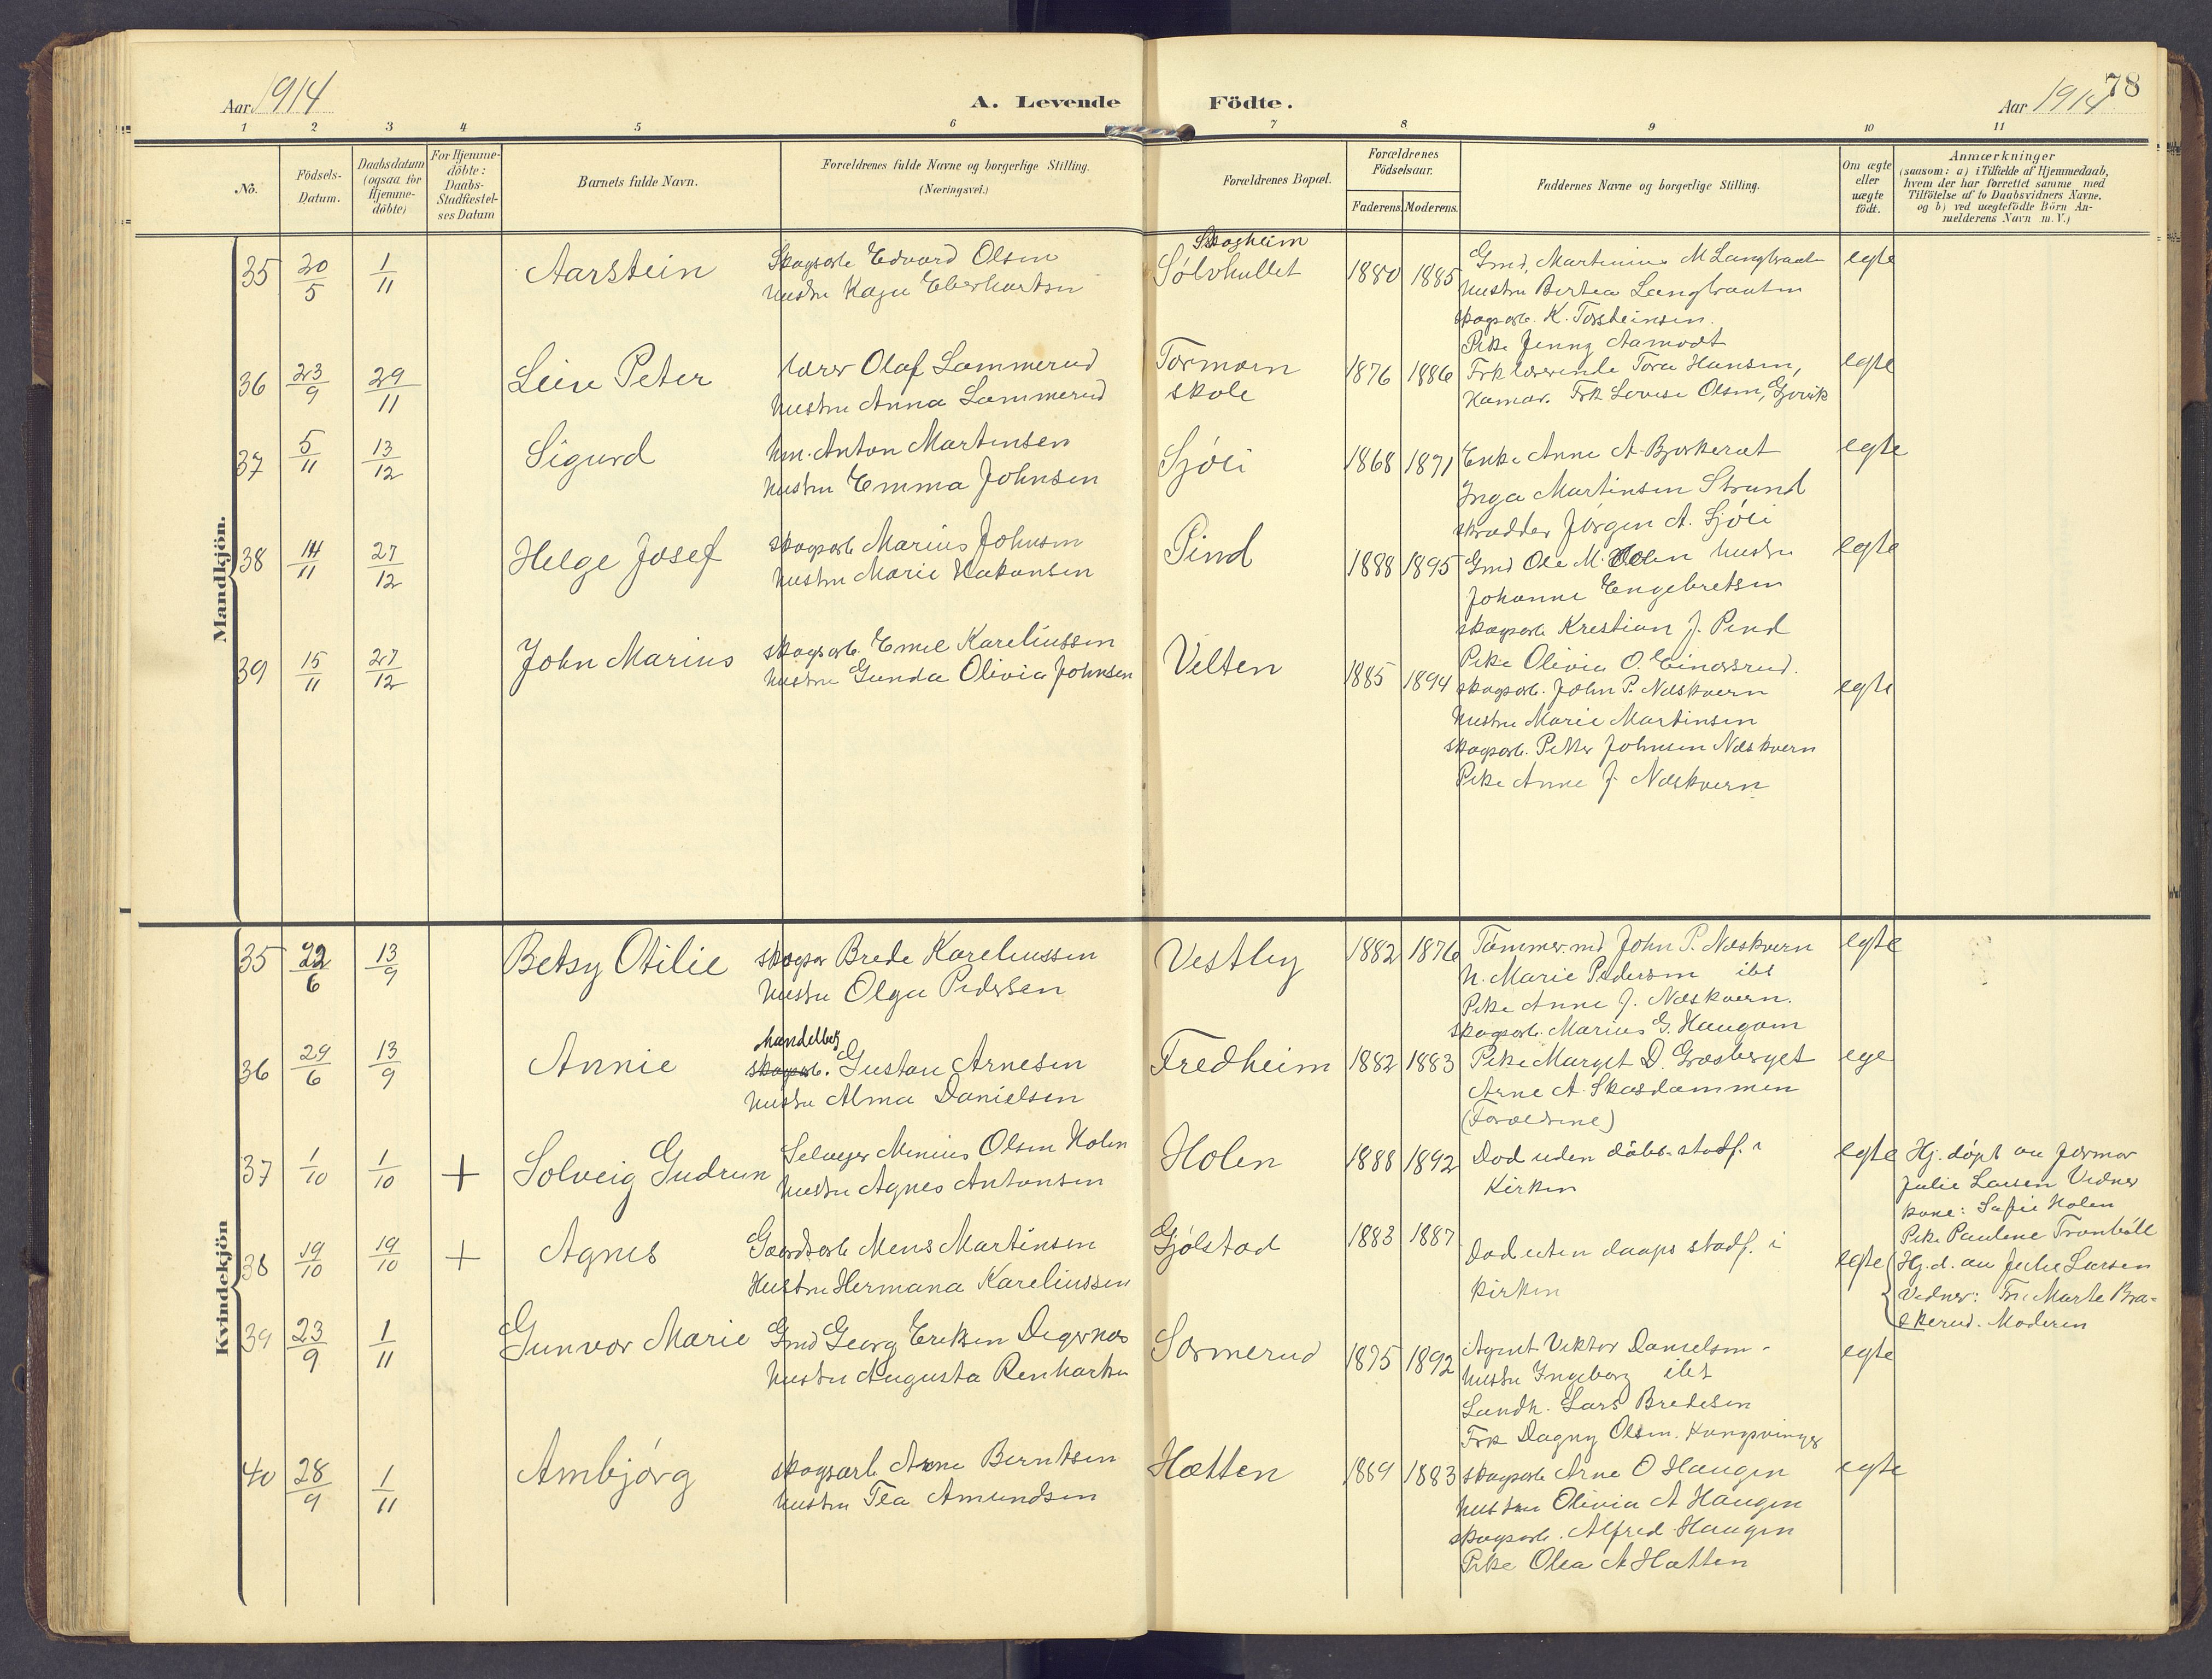 Aar 1914
A. Levende Födte.
Aar 1914
78
1 2 3 4 5 6 7 8 9 10 11
No.
Födsels-Datum.
Daabsdatum (ogsaa for Hjemme-döbte)
For Hjemme-döbte: Daabs-Stadfæstel-ses Datum
Barnets fulde Navn.
Forældrenes fulde Navne og borgerlige Stilling.
(Næringsvei.)
Forældrenes Bopæl.
Forældrenes Födselsaar.
Faderens. Moderens.
Faddernes Navne og borgerlige Stilling.
Om ægte eller uægte födt.
Anmærkninger
(saasom: a) i Tilfælde af Hjemmedaab,
hvem der har forrettet samme med
Tilföielse af to Daabsvidners Navne,
og b) ved uægtefödte Börn An-
melderens Navn m. V.)
Mandkjön.
35 20/5 1/11 Aarstein
Skogsarb Edvard Olsen
Hustru Kaja Eberhartsen
Skogheim
Sølvhullet 1880 1885
Gmd, Martinius M Langbraaten
Hustru Bertea Langbraaten
skogsarb. K. Torsteinsen.
Pike Jenny Aamodt
egte
36 23/9 29/11 Leiv Peter
lærer Olaf Lammerud
Hustru Anna Lammerud
Tormoen
skole 1876 1886
Frk lærerinde Tora Hansen,
Hamar. Frk Lovise Olsen, Gjøvik
egte
37 5/11 13/12 Sigurd
Hm. Anton Martinsen
Hustru Emma Johnsen
Sjøli 1868 1871
Enke Anne A. Bjørkerat
Inga Martinsen Strand
skrædder Jørgen A. Sjøli
egte
38 14/11 27/12 Helge Josef
skogsarb Marius Johnsen
Hustru Marie Hakansen
Pind 1888 1895
Gmd Ole M. Holen Hustru
Johanne Engebretsen
skogsarb Krestian J. Pind
Pike Olivia O. Einarsrud.
egte
39 15/11 27/12 John Marius
skogsarb. Emil Kareliussen
Hustru Gunda Olivia Johnsen
Velten 1885 1894
skogsarb. John P. Næskvern
Hustru Marie Martinsen
skogsarb. Petter Johnsen Næskvern
Pike Anne J. Næskvern
egte
Kvindekjön
35 22/6 13/9 Betsy Otilie
skogsar Brede Kareliussen
Hustru Olga Pedersen
Vestby 1882 1876
Tømmer.md John P. Næskvern
H. Marie Pedersen ibd
Pike Anne J. Næskvern.
skogsarb. Marius G. Haugom
egte
36 29/6 13/9 Annie
Handelbetj
skogsarb. Gustav Arnesen
Hustru Alma Danielsen
Fredheim 1882 1883
Pike Margit D. Græsberget
Arne A. Skasdammen
(Forældrene)
ege
37 1/10 1/10 + Solveig Gudrun
Selveger Menius Olsen Holen
Hustru Agnes Antonsen
Holen 1888 1892
Død uden dåbs-stadf. i
Kirken
egte
Hj. døpt au Jormor
Julie Larsen Vidner
kone: Sofie Holen
Pike Pauline Tronbøll
38 19/10 19/10 + Agnes
Gaardsarb Mens Martinsen
Hustru Hermana Kareliussen
Gjølstad 1883 1887
Død uten daaps stadf. i
kirken
egte
Hj. d. au Julie Larsen
Vidner: Fru Marte Bra=
ekerud. Moderen
39 23/9 1/11 Gunvor Marie
Gmd Georg Eriksen Digernes
Hustru Augusta Renhartsen
Sormerud 1875 1892
Agent Viktor Danielsen -
Hustru Ingeborg ibd
Landh. Lars Bredesen
Frk Dagny Olsen. Kongsvinger
egte
40 28/9 1/11 Arnbjørg
skogsarb Arne Berntsen
Hustru Tea Amundsen
Hætten 1889 1883
skogsarb Arne O Haugen
Hustru Olivia A Haugen
skogsarb. Alfred Haugen
Pike Olea A Hætten
egte